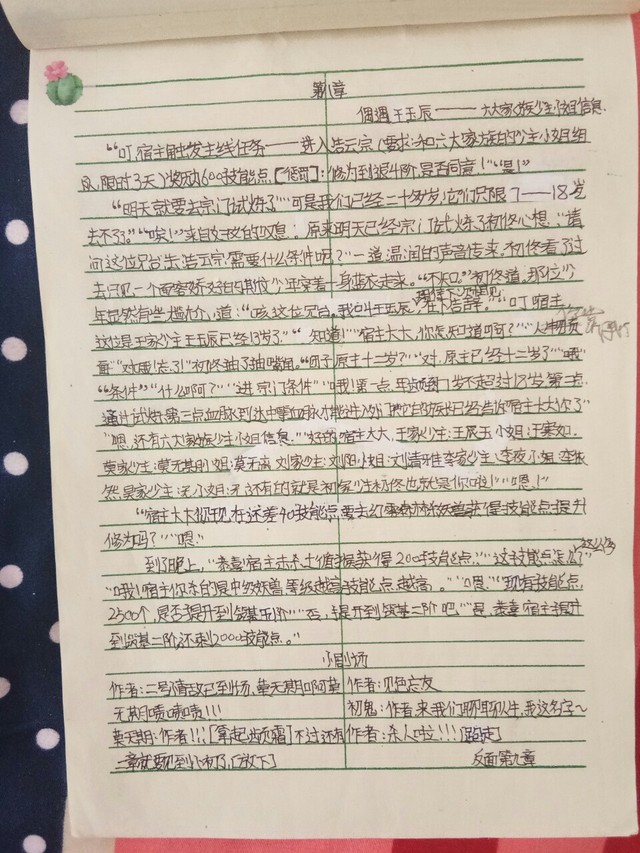 第八章
偶遇王玉辰——六大家族少主小姐信息
“叮,宿主触发主线任务——进入浩云宗(要求:和六大家族的少主小姐组
队,限时3天)奖励600技能点【惩罚】:修为到退4阶,是否同意!”“是!”
“明天就要去宗门试炼了”“可是我们已经二十多岁,它们只限7——18岁
去不了。”“唉!”来自好友的叹息:原来明天已经宗门试炼了初终心想:“请
问这位兄台去浩云宗需要什么条件呢?”一道温润的声音传来,初终看了过
去只见一个面容姣好的少年穿着一身蓝衣走来。“不知。”初终道,那位少
年显然有些尴尬,道:“咳,这位兄台,我叫王玉辰,在下告辞。”“叮宿主,
这位是王家少主王玉辰已经13岁了。”“知道!”“宿主大大,你怎知道呵?”“人类物质
哥”“对哦!忘了!”初终抽了抽嘴角。“团子原主十二岁?”“对,原主已经十二岁了”“哦”
“条件”“什么啊?”“进宗门条件”“哦!第一点,年龄须7岁不超过18岁,第二点
通过试炼,第三点血脉到达中等血脉才能进入外门
“嗯,还有六大家族少主小姐信息。”“好的宿主大大,王家少主:王辰玉小姐:王寒如.
莫家少主:莫无期小姐:莫无离 刘家少主:刘阳小姐:刘清雅 李家少主:李夜小姐:李依
然,景家少主:无小姐:无还有的就是初家少主初终也就是你啦!”“嗯!”
“宿主大大你现在还差90技能点,要去幻雾森林杀妖兽获得技能点提升
修为吗?”“嗯”
到了晚上,“恭喜宿主击杀土值猩猩获得200技能点!”“这技能点怎么
“哦!宿主你杀的是中级妖兽,等级越高技能点越高。”“嗯”“现有技能点
2500个,是否提升到筑基五阶”“否,提升到筑基二阶吧”“是,恭喜宿主提升
到筑基二阶,还剩2000技能点。”
小剧场
作者:二号情敌已到场,莫无期啊莫 作者:见色忘友
无期啧啧啧!!! 初鬼:作者,来我们聊聊人生,我这名字~
莫无期:作者!!![拿起 不过还有 作者:杀人啦!!![跑走]
一章就要见到小初了,[放下] 反面第九章